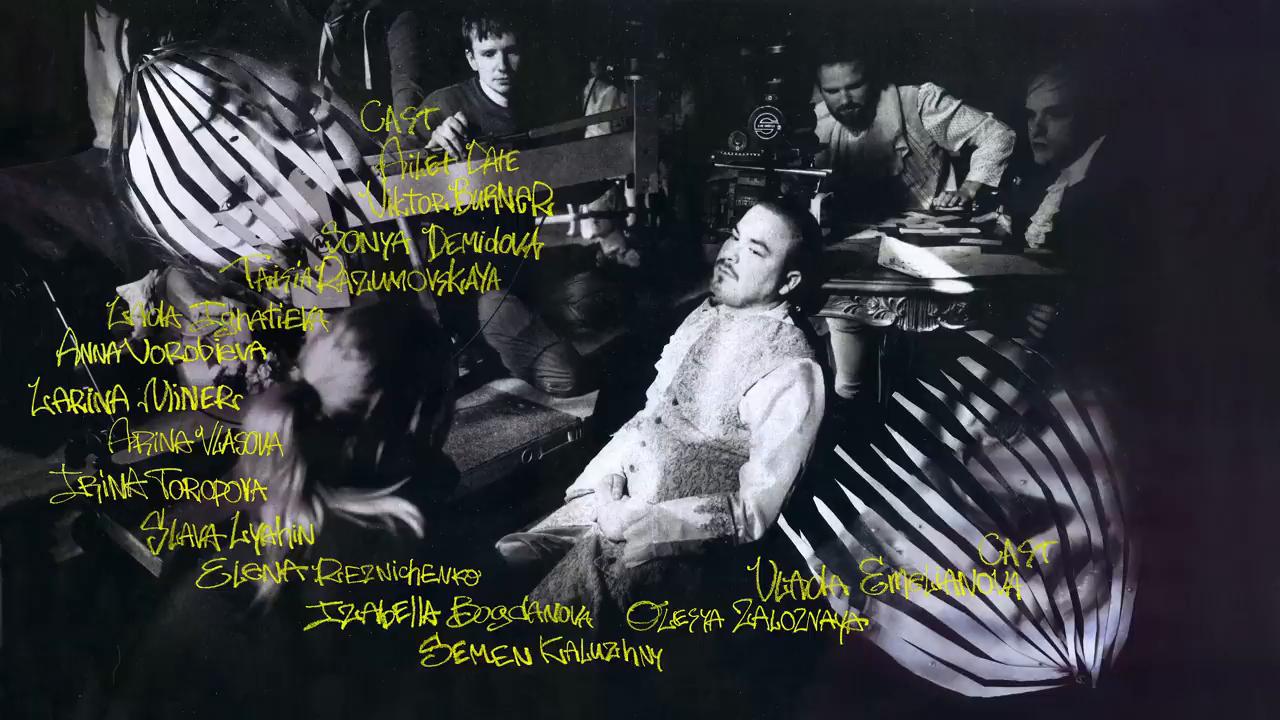 CAST
AILEF DATE
VIKTOR BURNER
SONYA DEMIDOVA
TAISIA RAZUMOVSKAYA
LADA IGNATIEVA
ANNA VOROBIEVA
LARINA MINER
ARINA VLASOVA
IRINA TOROPOVA
SLAVA LYAHIN
ELENA REZNICHENKO
IZABELLA BOGDANOVA
SEMEN KALUZHNY
CAST
VLADA EMELIANOVA
OLESYA ZALOZNAYA